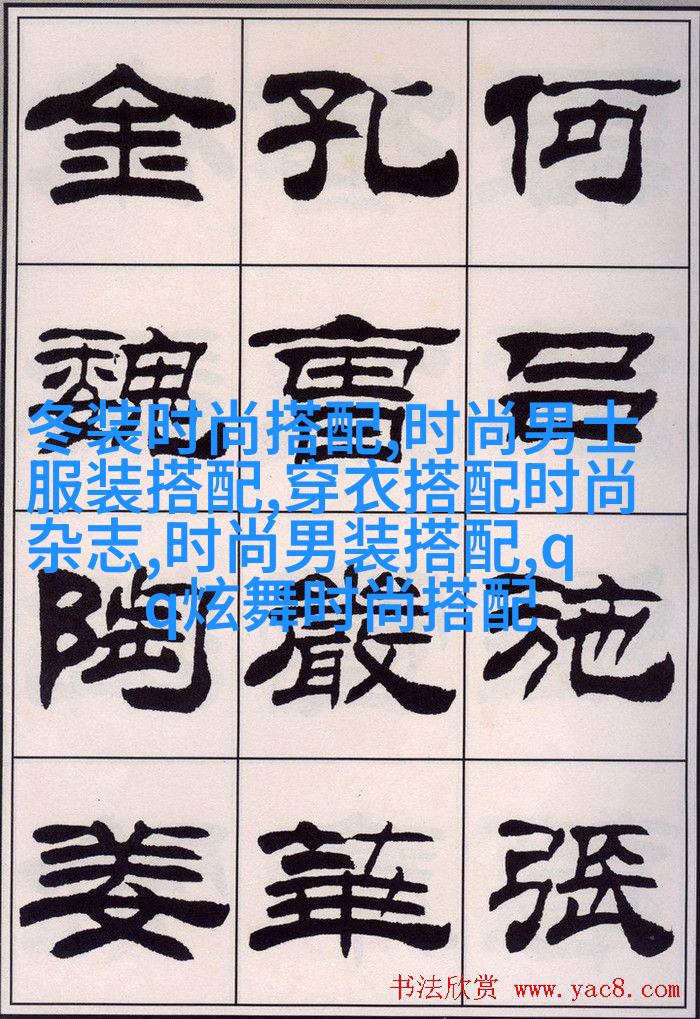 何呂施張
孔曹嚴華
金魏陶姜
冬装时尚搭配,时尚男士
服装搭配,穿衣搭配时尚
杂志,时尚男装搭配,q
q炫舞时尚搭配
书法欣赏 www.yac8.com